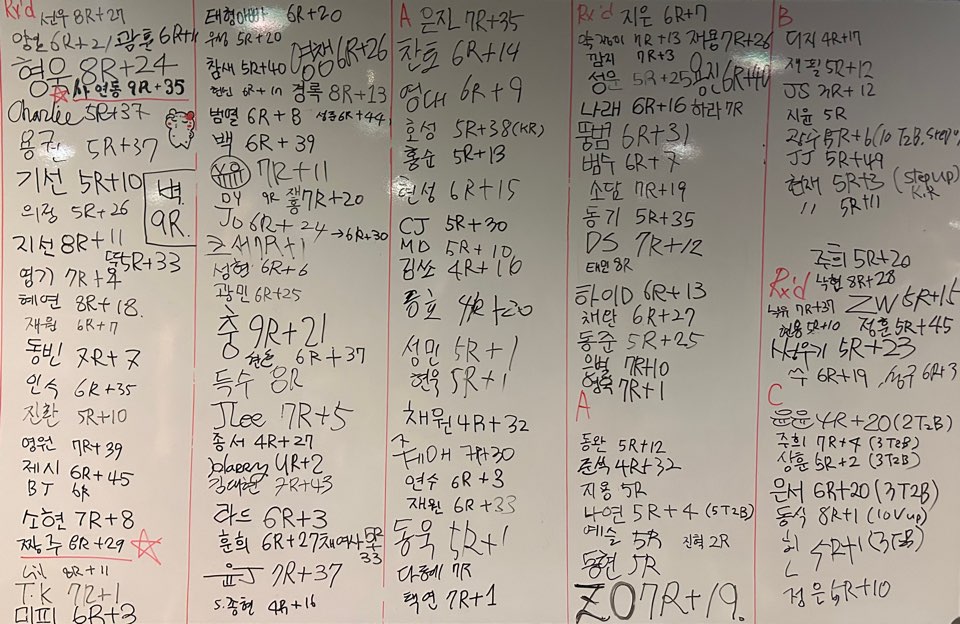 Rx'd 선우 8R+27
6R+21 광훈 6R+
형욱 8R+24
사연동 9R+35
Charlee 5R+37
용권 5R+37
기선 5R+10
벽. 9R.
의정 5R+26
지선 8R+11
뚝 5R+33
엽기 7R+4
혜연 8R+18.
재원 6R+7
동빈 7R+7
인식 6R+35
진환 5R+10
영원 7R+39
제시 6R+45
BT 6R
소현 7R+8
짱주 8R+29
8R+11
T.K 7R+1
미피 6R+3
태형아빠 6R+20
우성 5R+20
영쟁 6R+26
참새 5R+40
경록 8R+13
범열 6R+8 6R+44
백 6R+39
7R+11
9R 재홍 7R+20
Jo 6R+24 → 6R+30
7R+1
성현 6R+6
광민 6R+25
충 9R+21
6R+37
득수 8R
JLee 7R+5
종서 4R+27
Harry 4R+2
김대현 7R+43
라드 6R+3
훈희 6R+27 5R+33
윤J 7R+37
S.종현 4R+16
A 은진 7R+35
찬호 6R+14
영대 6R+9
호성 5R+38 (KR)
홍순 5R+13
현성 6R+15
CJ 5R+30
MD 5R+10
김쏘 4R+16
4R+20
성민 5R+1
현욱 5R+1
채원 4R+32
7R+30
연수 6R+3
재원 6R+33
동욱 5R+1
다혜 7R
택연 7R+1
Rx'd 지은 6R+7
7R+13 재용 7R+26
깜지 7R+3
성운 5R+25 용진 6R+40
나래 6R+16 하라 7R
뚱범 6R+31
범수 6R+7
소담 7R+19
동기 5R+35
DS 7R+12
태원 8R
하이D 6R+13
채란 6R+27
동준 5R+25
은별 7R+10
형욱 7R+1
A
동완 5R+12
준석 4R+32
지용 5R
나연 5R+4 (5T2B)
예슬 5R 진혁 2R
동현 5R
ZO 7R+19.
B
디지 4R+17
재필 5R+12
JS 7R+12
지윤 5R
광수 5R+6 (10 T2B, Step up
JJ 5R+49
현재 5R+3 (Step up) K.R
" 5R+11
주희 5R+20
Rx'd 낙현 8R+28
7R+37 ZW 5R+15
현용 5R+10 정훈 5R+45
5R+23
쑤 6R+19 6R+3
C
윤윤 4R+20 (2T2B)
주희 7R+4 (3T2B)
상훈 5R+2 (3T2B)
은서 6R+20 (3T2B)
동식 8R+1 (10Vup)
정은 5R+10